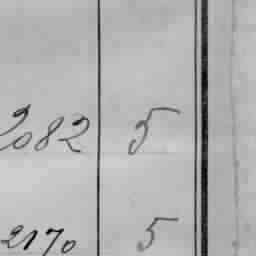 2082 5
2170 5